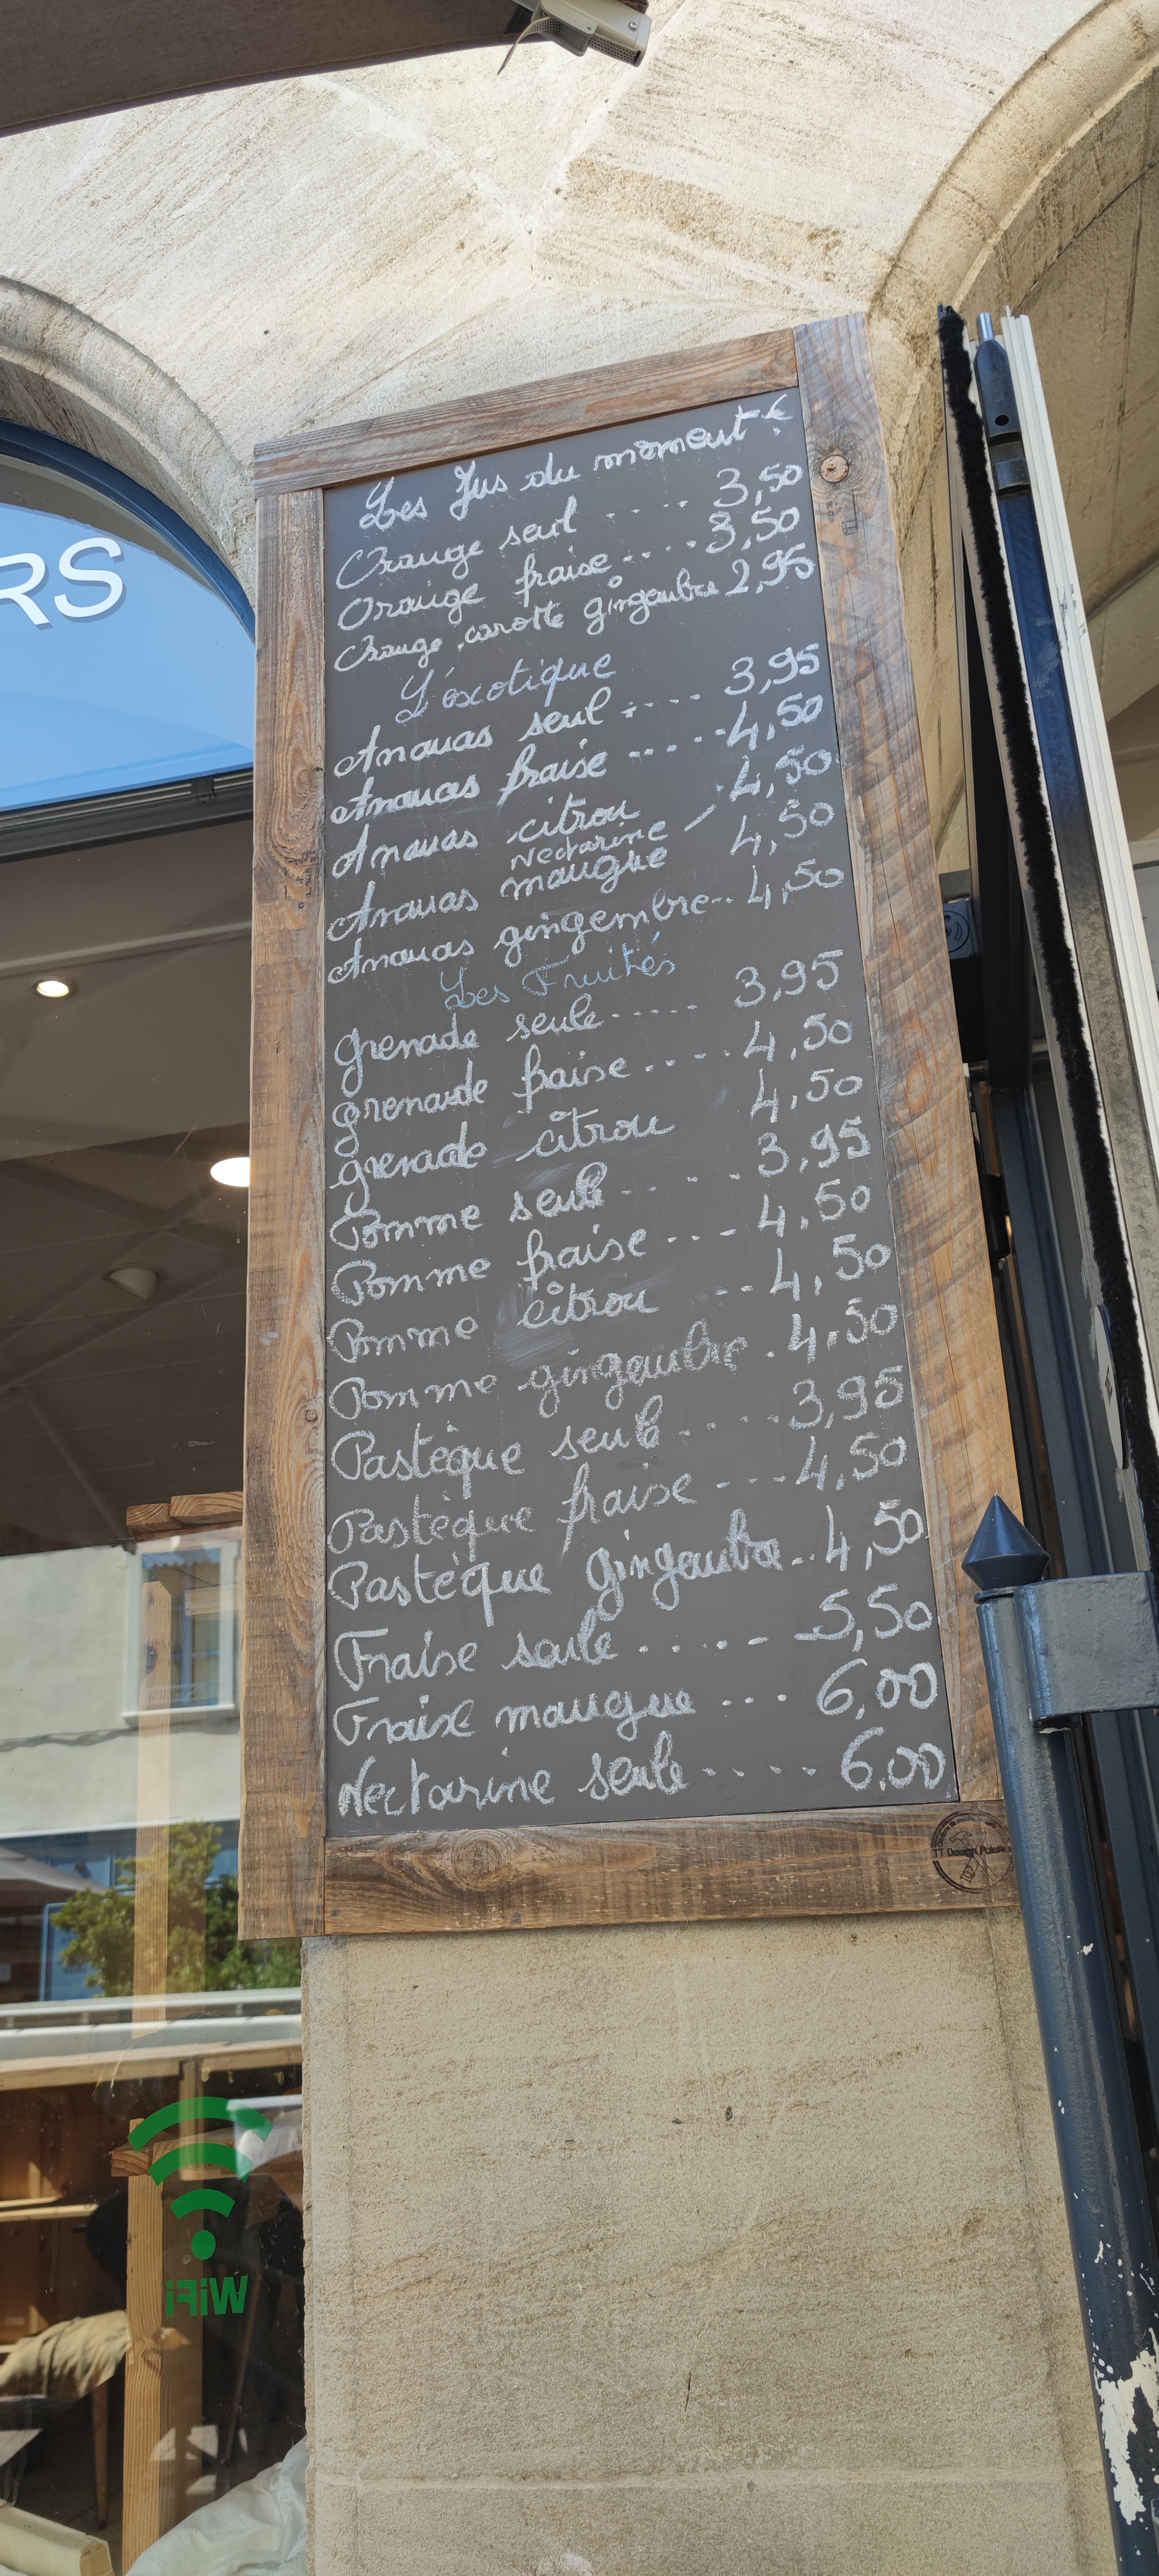 RS
Les Jus du moment €
Orange seul .... 3,50
Orange fraise .... 3,50
Orange carotte gingembre 2,95
L'exotique
Ananas seul ..... 3,95
Ananas fraise ..... 4,50
Ananas citron 4,50
Nectarine
Ananas mangue 4,50
Ananas gingembre .. 4,50
Les Fruités
grenade seule ..... 3,95
grenade fraise .... 4,50
grenade citron 4,50
Pomme seule ..... 3,95
Pomme fraise ... 4,50
Pomme citron .. 4,50
Pomme gingembre . 4,50
Pastèque seule ..... 3,95
Pastèque fraise .... 4,50
Pastèque gingembre .. 4,50
Fraise seule ..... 5,50
Fraise mangue ... 6,00
Nectarine seule ..... 6.00
WiFi